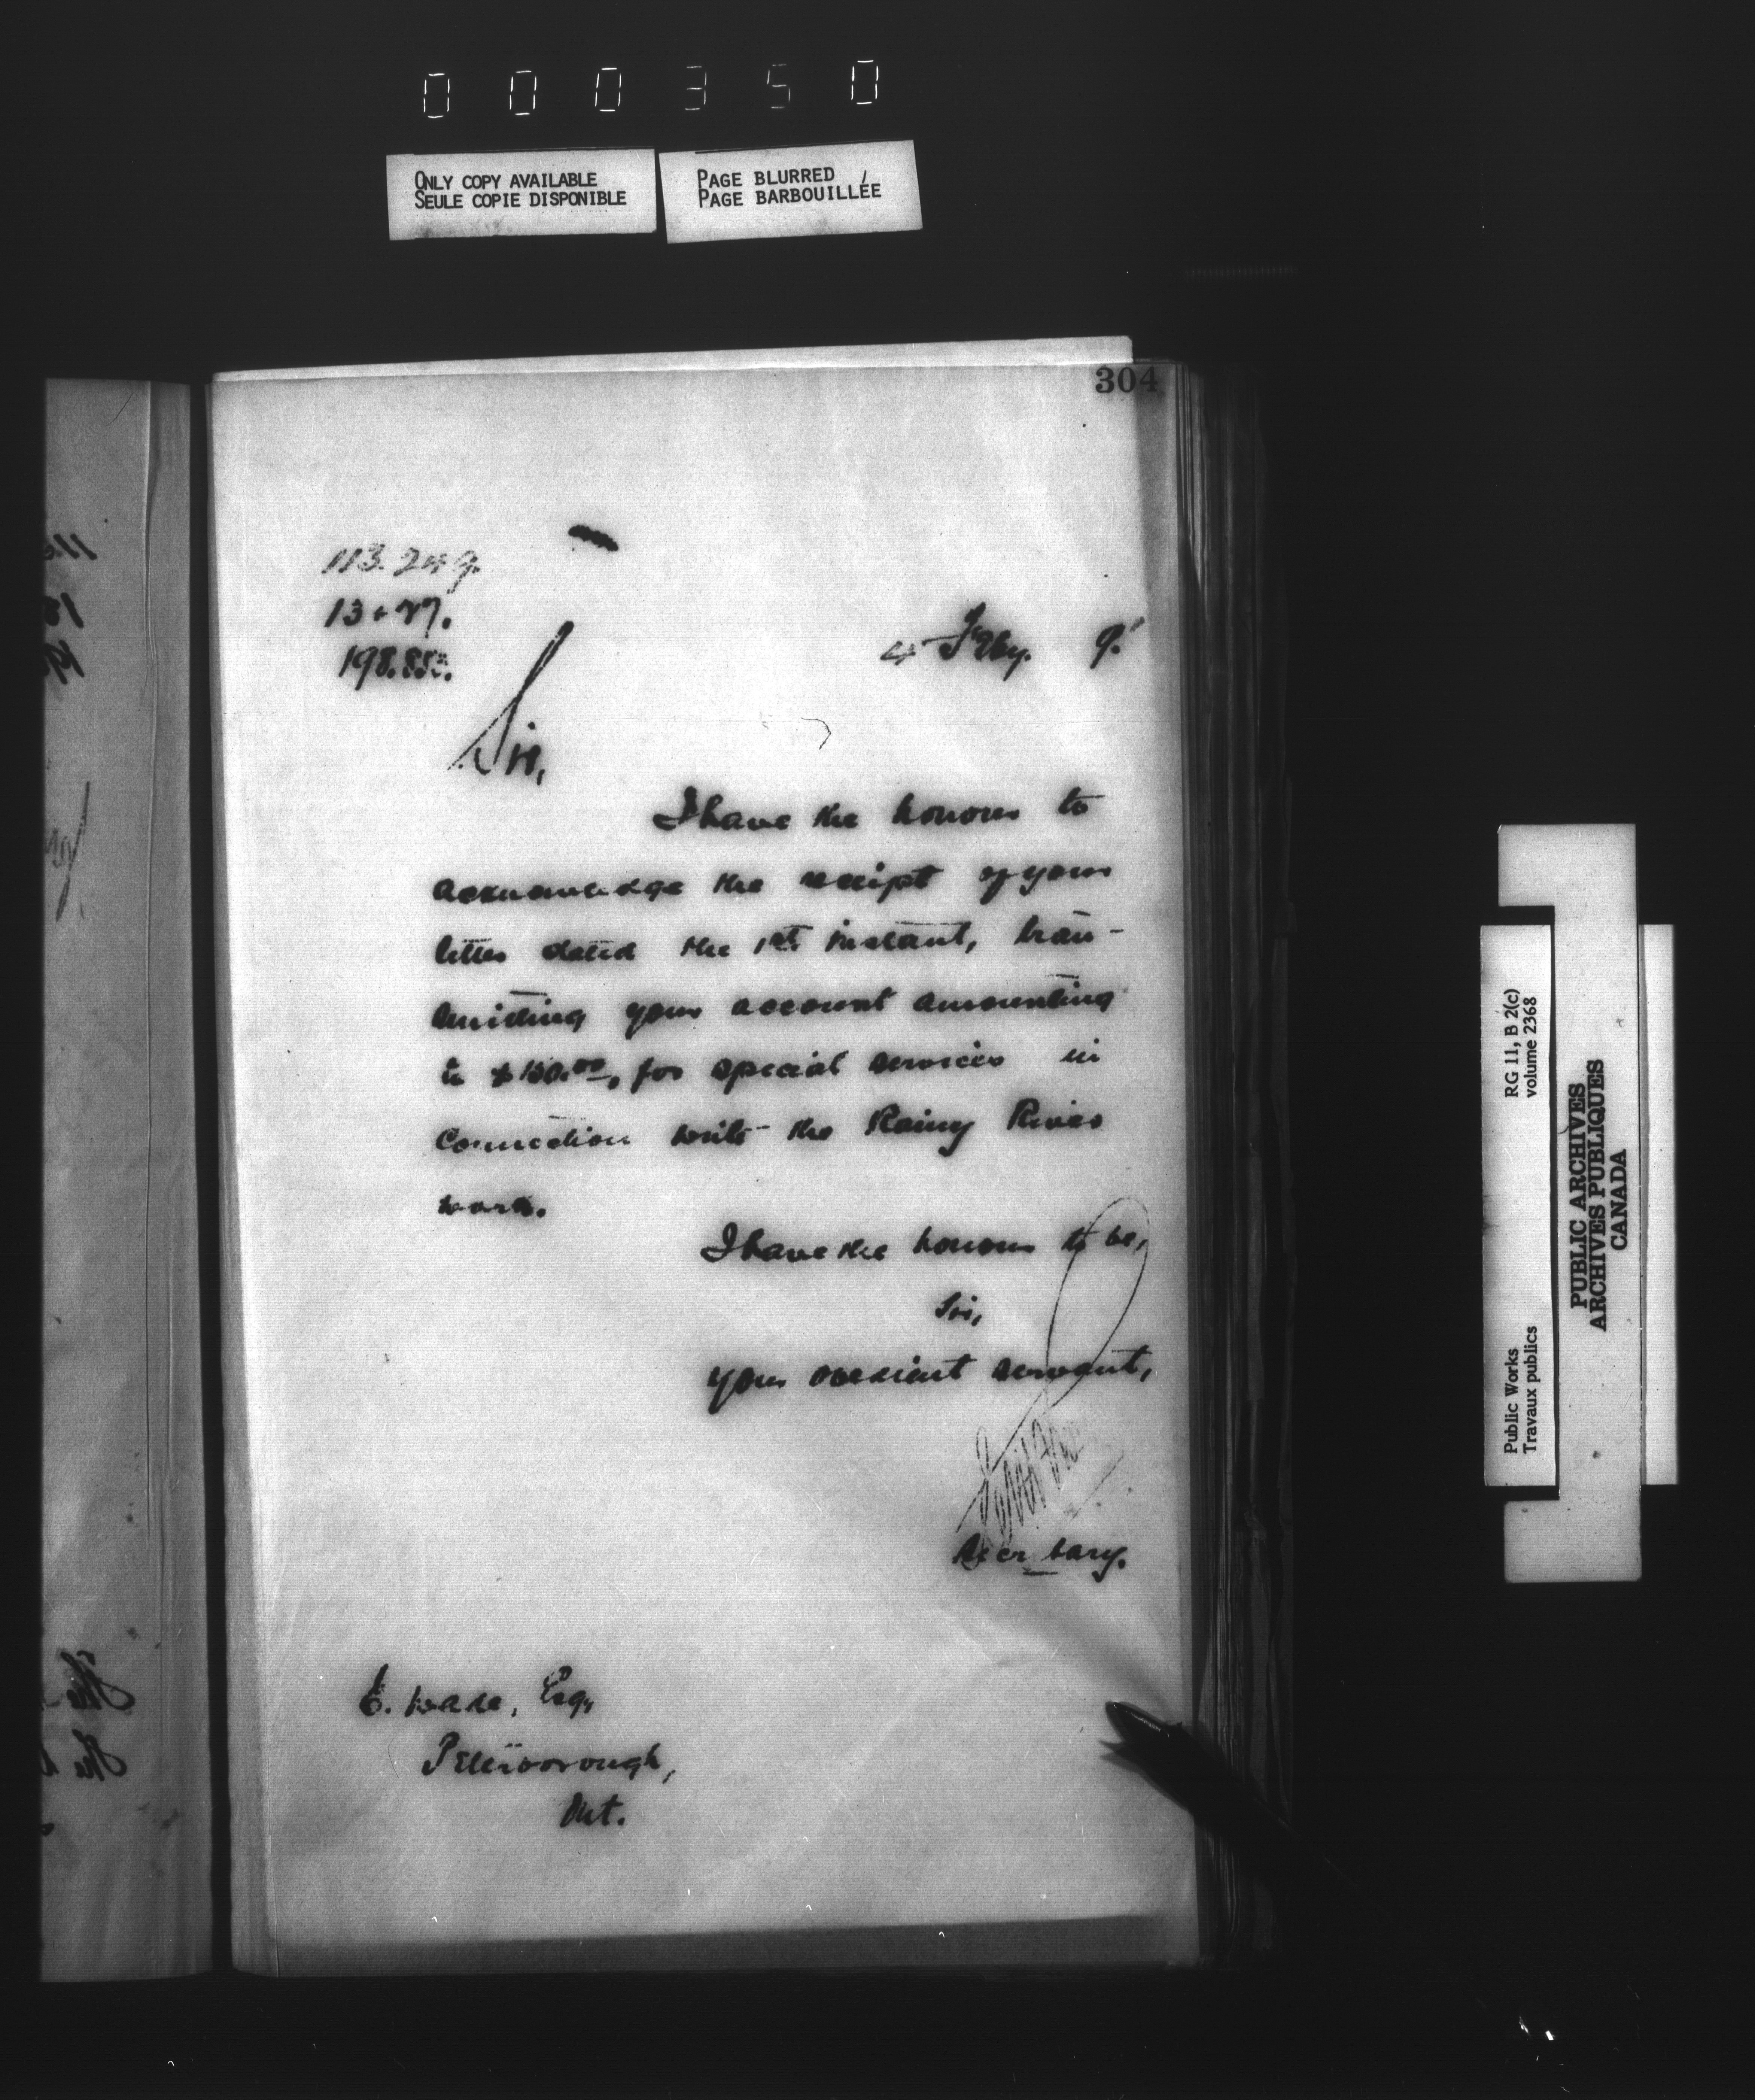 0 0 0 3 5 0
ONLY COPY AVAILABLE
SEULE COPIE DISPONIBLE
PAGE BLURRED
PAGE BARBOUILLÉE
304
113.249.
4 Feby. 9.
Sir,
I have the honour to
acknowledge the receipt of your
letter dated the 1st instant, tran-
smitting your account amounting
to for special services in
connection with the Rainy River
work.
I have the honour to be,
Sir,
your obedient servant,
Secretary.
E. Wade, Esq,
Peterborough,
Ont.
RG 11, B 2(c)
volume 2368
Public Works
Travaux publics
PUBLIC ARCHIVES
ARCHIVES PUBLIQUES
CANADA